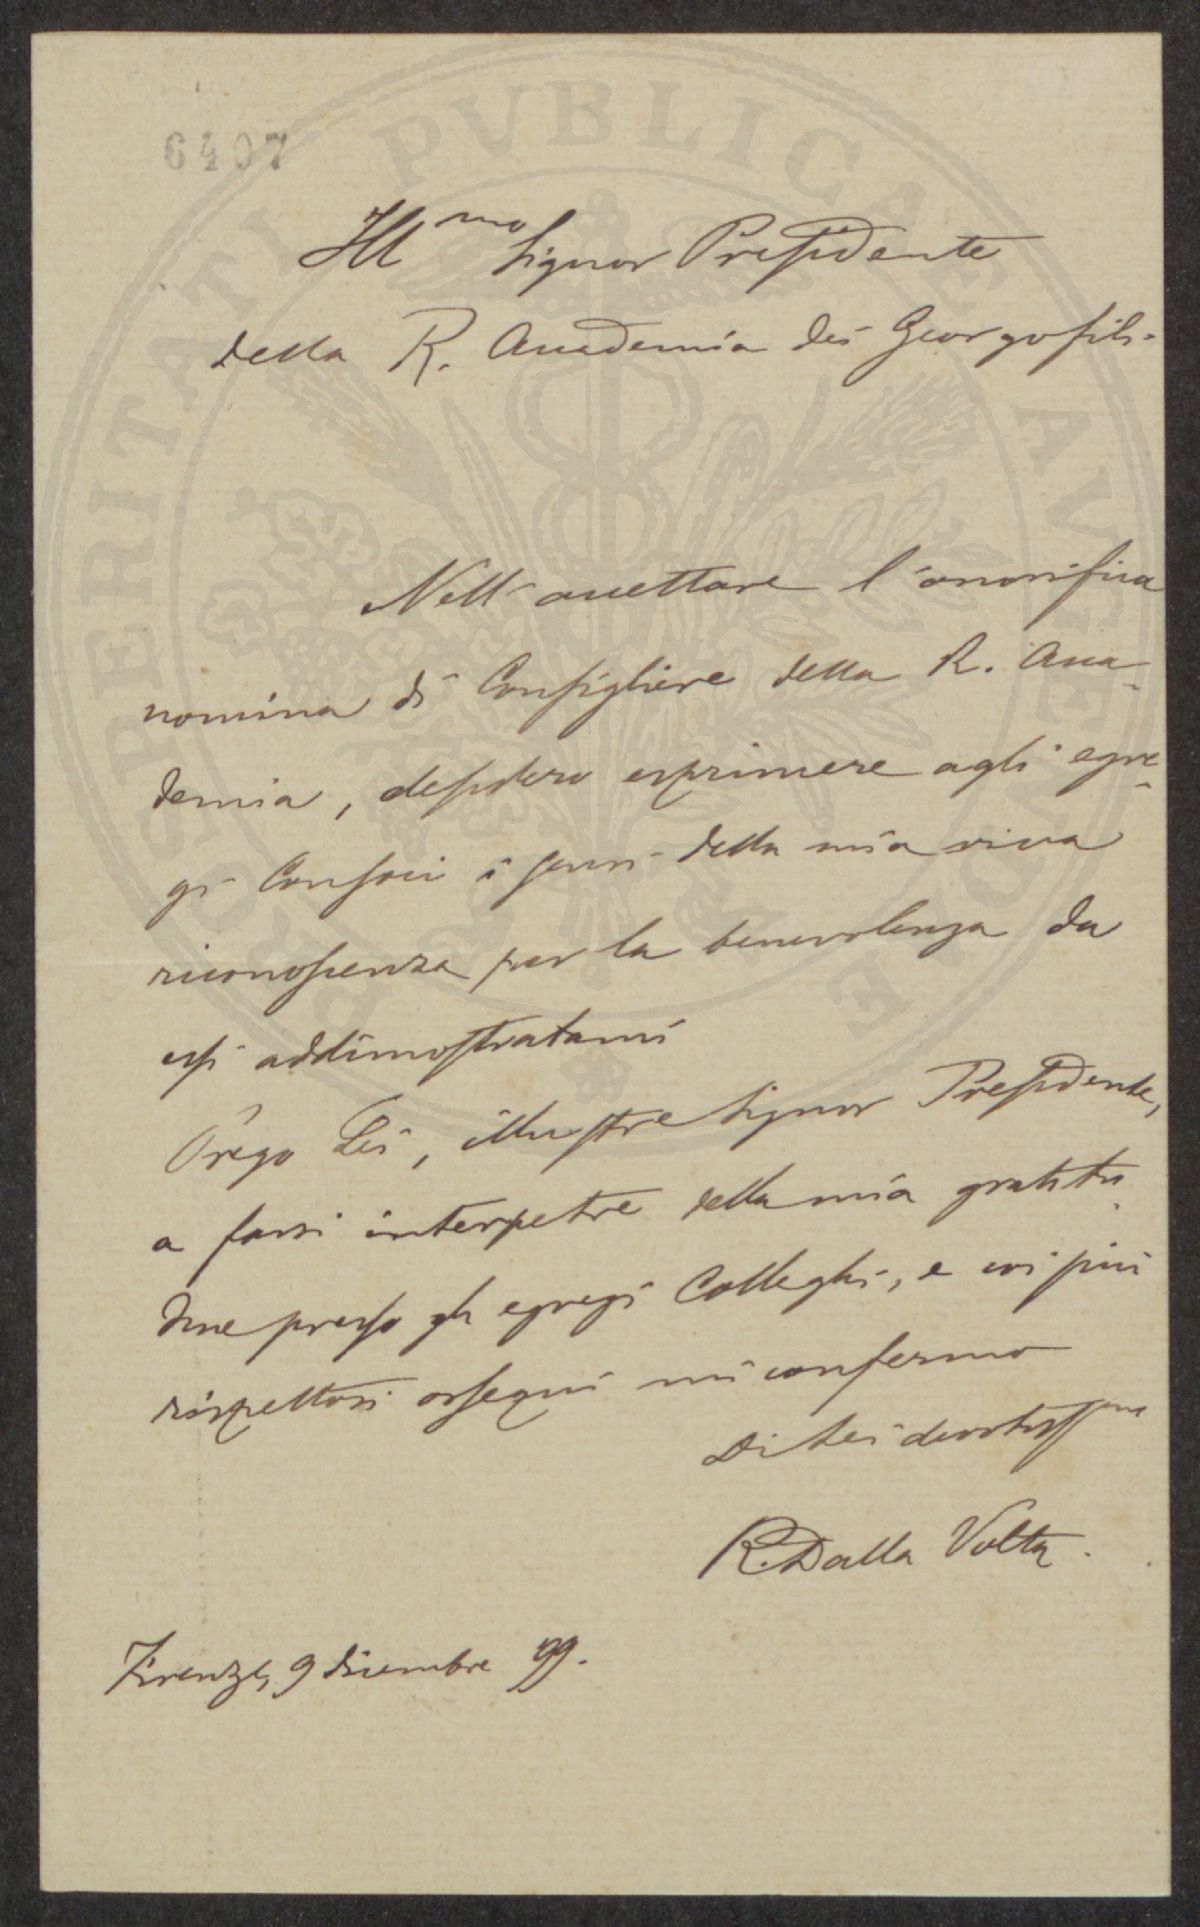 6407
Ill.mo Signor Presidente
della R. Accademia dei Georgofili
Nell'accettare l'onorifica
nomina di Consigliere della R. Acca-
demia, desidero esprimere agli egre-
gi Consoci i sensi della mia viva
riconoscenza per la benevolenza da
essi addimostratami
Prego Lei, illustre Signor Presidente,
a farsi interpetre della mia gratitu-
dine presso gli egregi Colleghi, e coi più
rispettosi ossequi mi confermo
Di Lei devotiss.mo
R. Dalla Volta.
Firenze, 9 dicembre 99.
PROSPERITATI PVBLICAE AVGENDAE